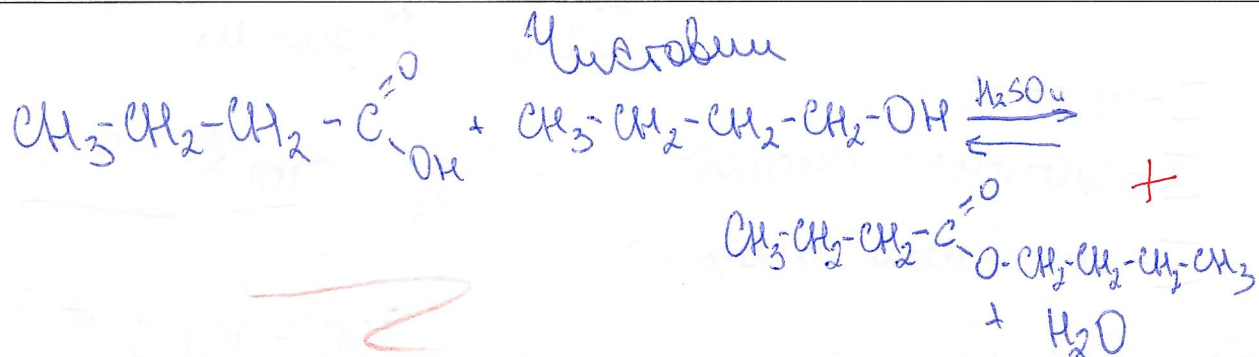 Чистовик
CH₃-CH₂-CH₂-C=O OH + CH₃-CH₂-CH₂-CH₂-OH H₂SO₄ ⇌
+
CH₃-CH₂-CH₂-C=O O-CH₂-CH₂-CH₂-CH₃
+ H₂O